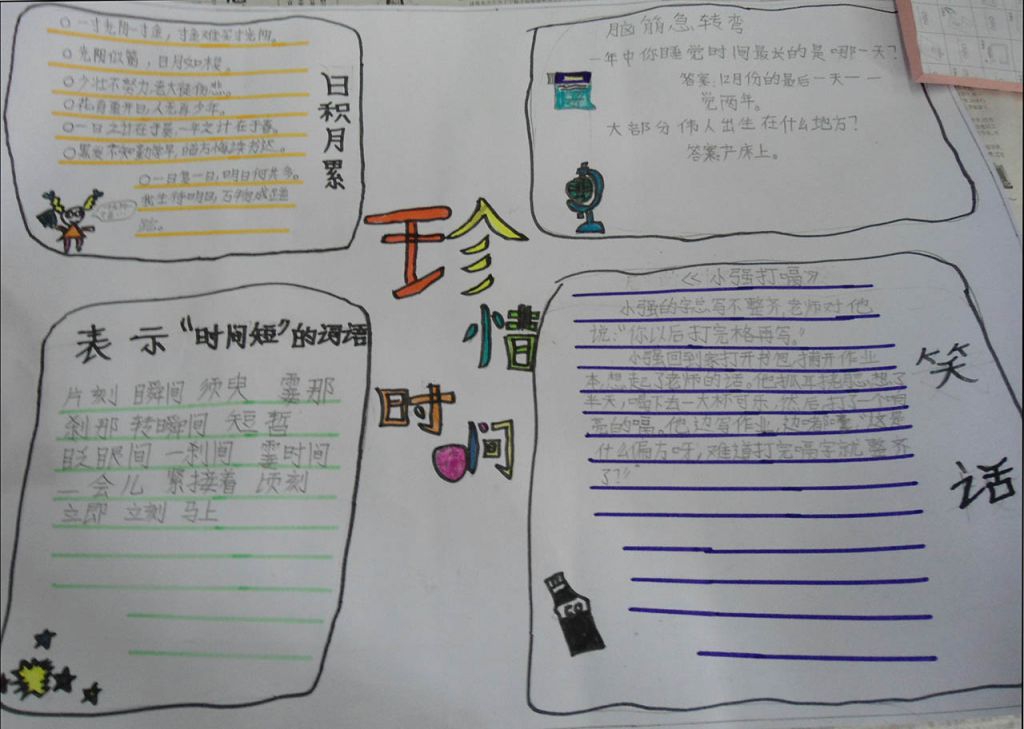 ○一寸光阴一寸金，寸金难买寸光阴。
○光阴似箭，日月如梭。
○少壮不努力，老大徒伤悲。
○花有重开日，人无再少年。
○一日之计在于晨，一年之计在于春。
○黑发不知勤学早，白首方悔读书迟。
○一日复一日，明日何其多。
我生待明日，万事成蹉
跎。
日积月累
脑筋急转弯
一年中你睡觉时间最长的是哪一天？
答案：12月份的最后一天——
觉两年。
大部分伟人出生在什么地方？
答案：产床上。
珍惜
时间
表示“时间短”的词语
片刻 瞬间 须臾 霎那
刹那 转瞬间 短暂
眨眼间 一刹间 霎时间
一会儿 紧接着 顷刻
立即 立刻 马上
《小强打嗝》
小强的字总写不整齐，老师对他
说：“你以后打完格再写。”
小强回到家打开书包，捕开作业
本，想起了老师的话。他抓耳挠腮想了
半天，喝下去一大杯可乐，然后，打了一个响
亮的嗝。他边写作业，边嘟囔：“这是
什么偏方呀，难道打完嗝字就整齐
了？”
笑话